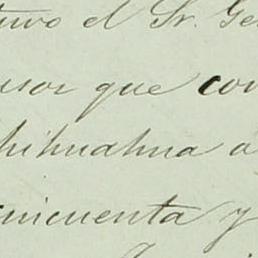 tuvo el Sr. Ge
sor que con
hihuahua a
cincuenta y